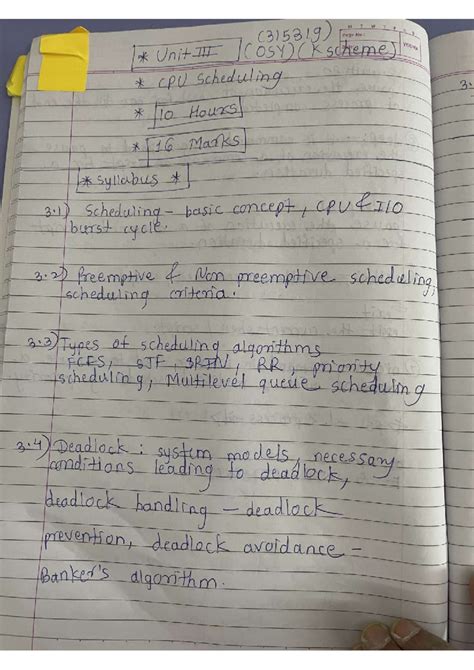 (315319)
* Unit III (OSY) (K scheme)
* CPU Scheduling
* 10 Hours
* 16 Marks
* Syllabus *
3.1) Scheduling - basic concept, CPU & I/O
burst cycle.
3.2) Preemptive & Non preemptive scheduling,
scheduling criteria.
3.3) Types of scheduling algorithms
FCFS, SJF, SRTN, RR, priority
scheduling, Multilevel queue scheduling
3.4) Deadlock : system models, necessary
conditions leading to deadlock,
deadlock handling - deadlock
prevention, deadlock avoidance -
Banker's algorithm.